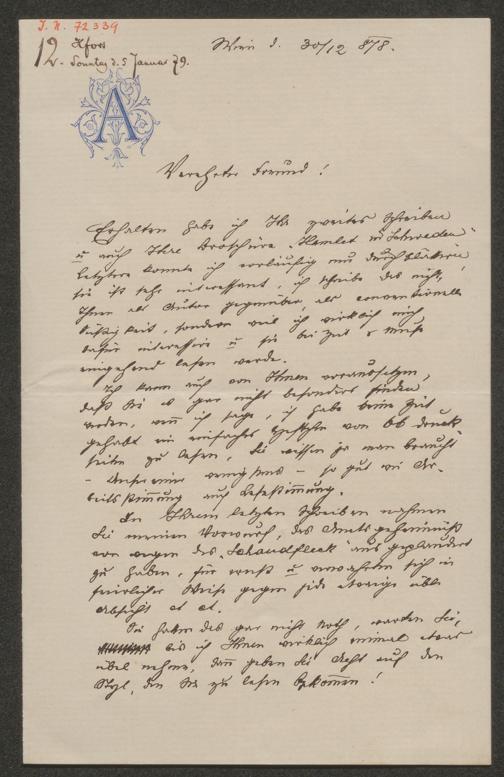 I. N. 72339
12. Hfors
Sonntag d. 5 Januar 79.
Wien d. 30/12 878.
A
Verehrter Freund!
Erhalten habe ich Ihr zweites Schreiben
u auch Ihre Broschüre „Hamlet in Schweden“
letztere konnte ich vorläufig nur durchblättern
sie ist sehr interessant, ich schreibe das nicht,
Ihnen als Autor gegenüber, als conventionelle
sondern weil ich wirklich mich
dafür interessire u sie bei Zeit & Muse
eingehend lesen werde.
Ich kann auch von Ihnen voraussetzen,
daß Sie es gar nicht besonders finden
werden, wenn ich sage, ich habe keine Zeit
gehabt ein einfaches Heftchen von 66 Druck-
seiten zu lesen, Sie wissen ja man braucht
– Unsereiner wenigstens – so gut wie Ar-
beitsstimmung auch Lesestimmung.
In Ihrem letzten Schreiben nehmen
Sie meinen Vorwurf, das Amtsgeheimniß
von wegen des „Schandfleck“ ausgeplaudert
zu haben, für ernst u verwahren sich in
feierlicher Weise gegen jede etwaige üble
Absicht et ct.
Sie haben das gar nicht noth, warten Sie,
bis ich Ihnen wirklich einmal etwas
übel nehme, dann geben Sie Acht auf den
Styl, den Sie zu lesen bekommen!